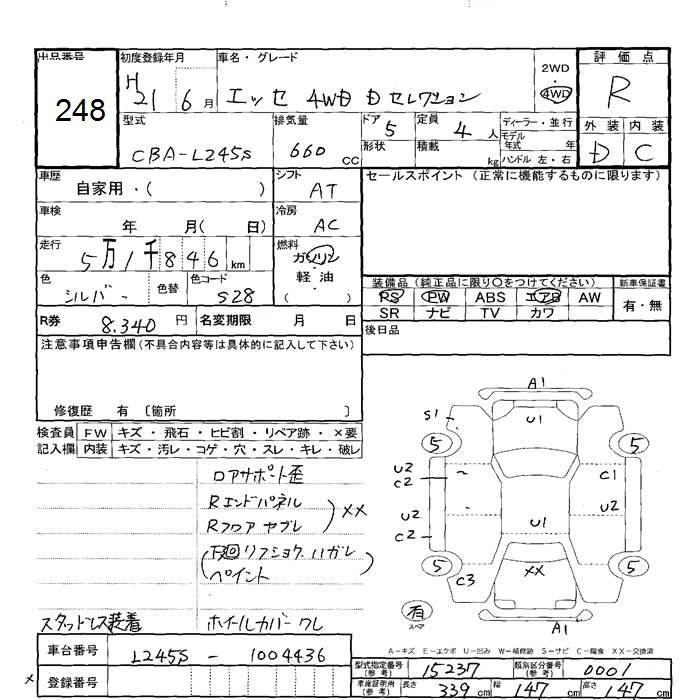 出品番号 248
初度登録年月 H 21 6月
車名・グレード エッセ 4WD Dセレクション
2WD
4WD
評価点 R
外装 D 内装 C
型式 CBA-L245S
排気量 660 CC
ドア 5
形状
定員 4 人
積載 kg
ディーラー・並行
モデル年式 年
ハンドル 左・右
車歴 自家用・( )
シフト AT
車検 年 月( 日)
冷房 AC
走行 5万1千846 km
燃料 ガソリン
軽油
( ・ )
色 シルバー 色替 色コード S28
R券 8.340 円 名変期限 月 日
セールスポイント (正常に機能するものに限ります)
装備品 (純正品に限り〇をつけてください) 新車保証書
PS PW ABS エアB AW 有・無
SR ナビ TV カワ
後日品
注意事項申告欄 (不具合内容等は具体的に記入して下さい)
修復歴 有 〔箇所 〕
検査員 FW キズ・飛石・ヒビ割・リペア跡・×要
記入欄 内装 キズ・汚レ・コゲ・穴・スレ・キレ・破レ
ロアサポート歪
Rエンドパネル
Rフロア ヤブレ
XX
下廻リフショク ハガレ
ペイント
スタットレス装着 ホイールカバーワレ
A1
S1 U1
5 5
U2
C2
C1
U2
C2
U2
U1
5 5
C3 XX
有
スペア
A1
A-キズ E-エクボ U-凹み W-補修跡 S-サビ C-腐食 XX-交換済
車台番号 L245S - 1004436
登録番号
×
型式指定番号 (参考) 15237 類別区分番号 (参考) 0001
車庫証明用 (参考) 長さ 339 cm 幅 147 cm 高さ 147 cm